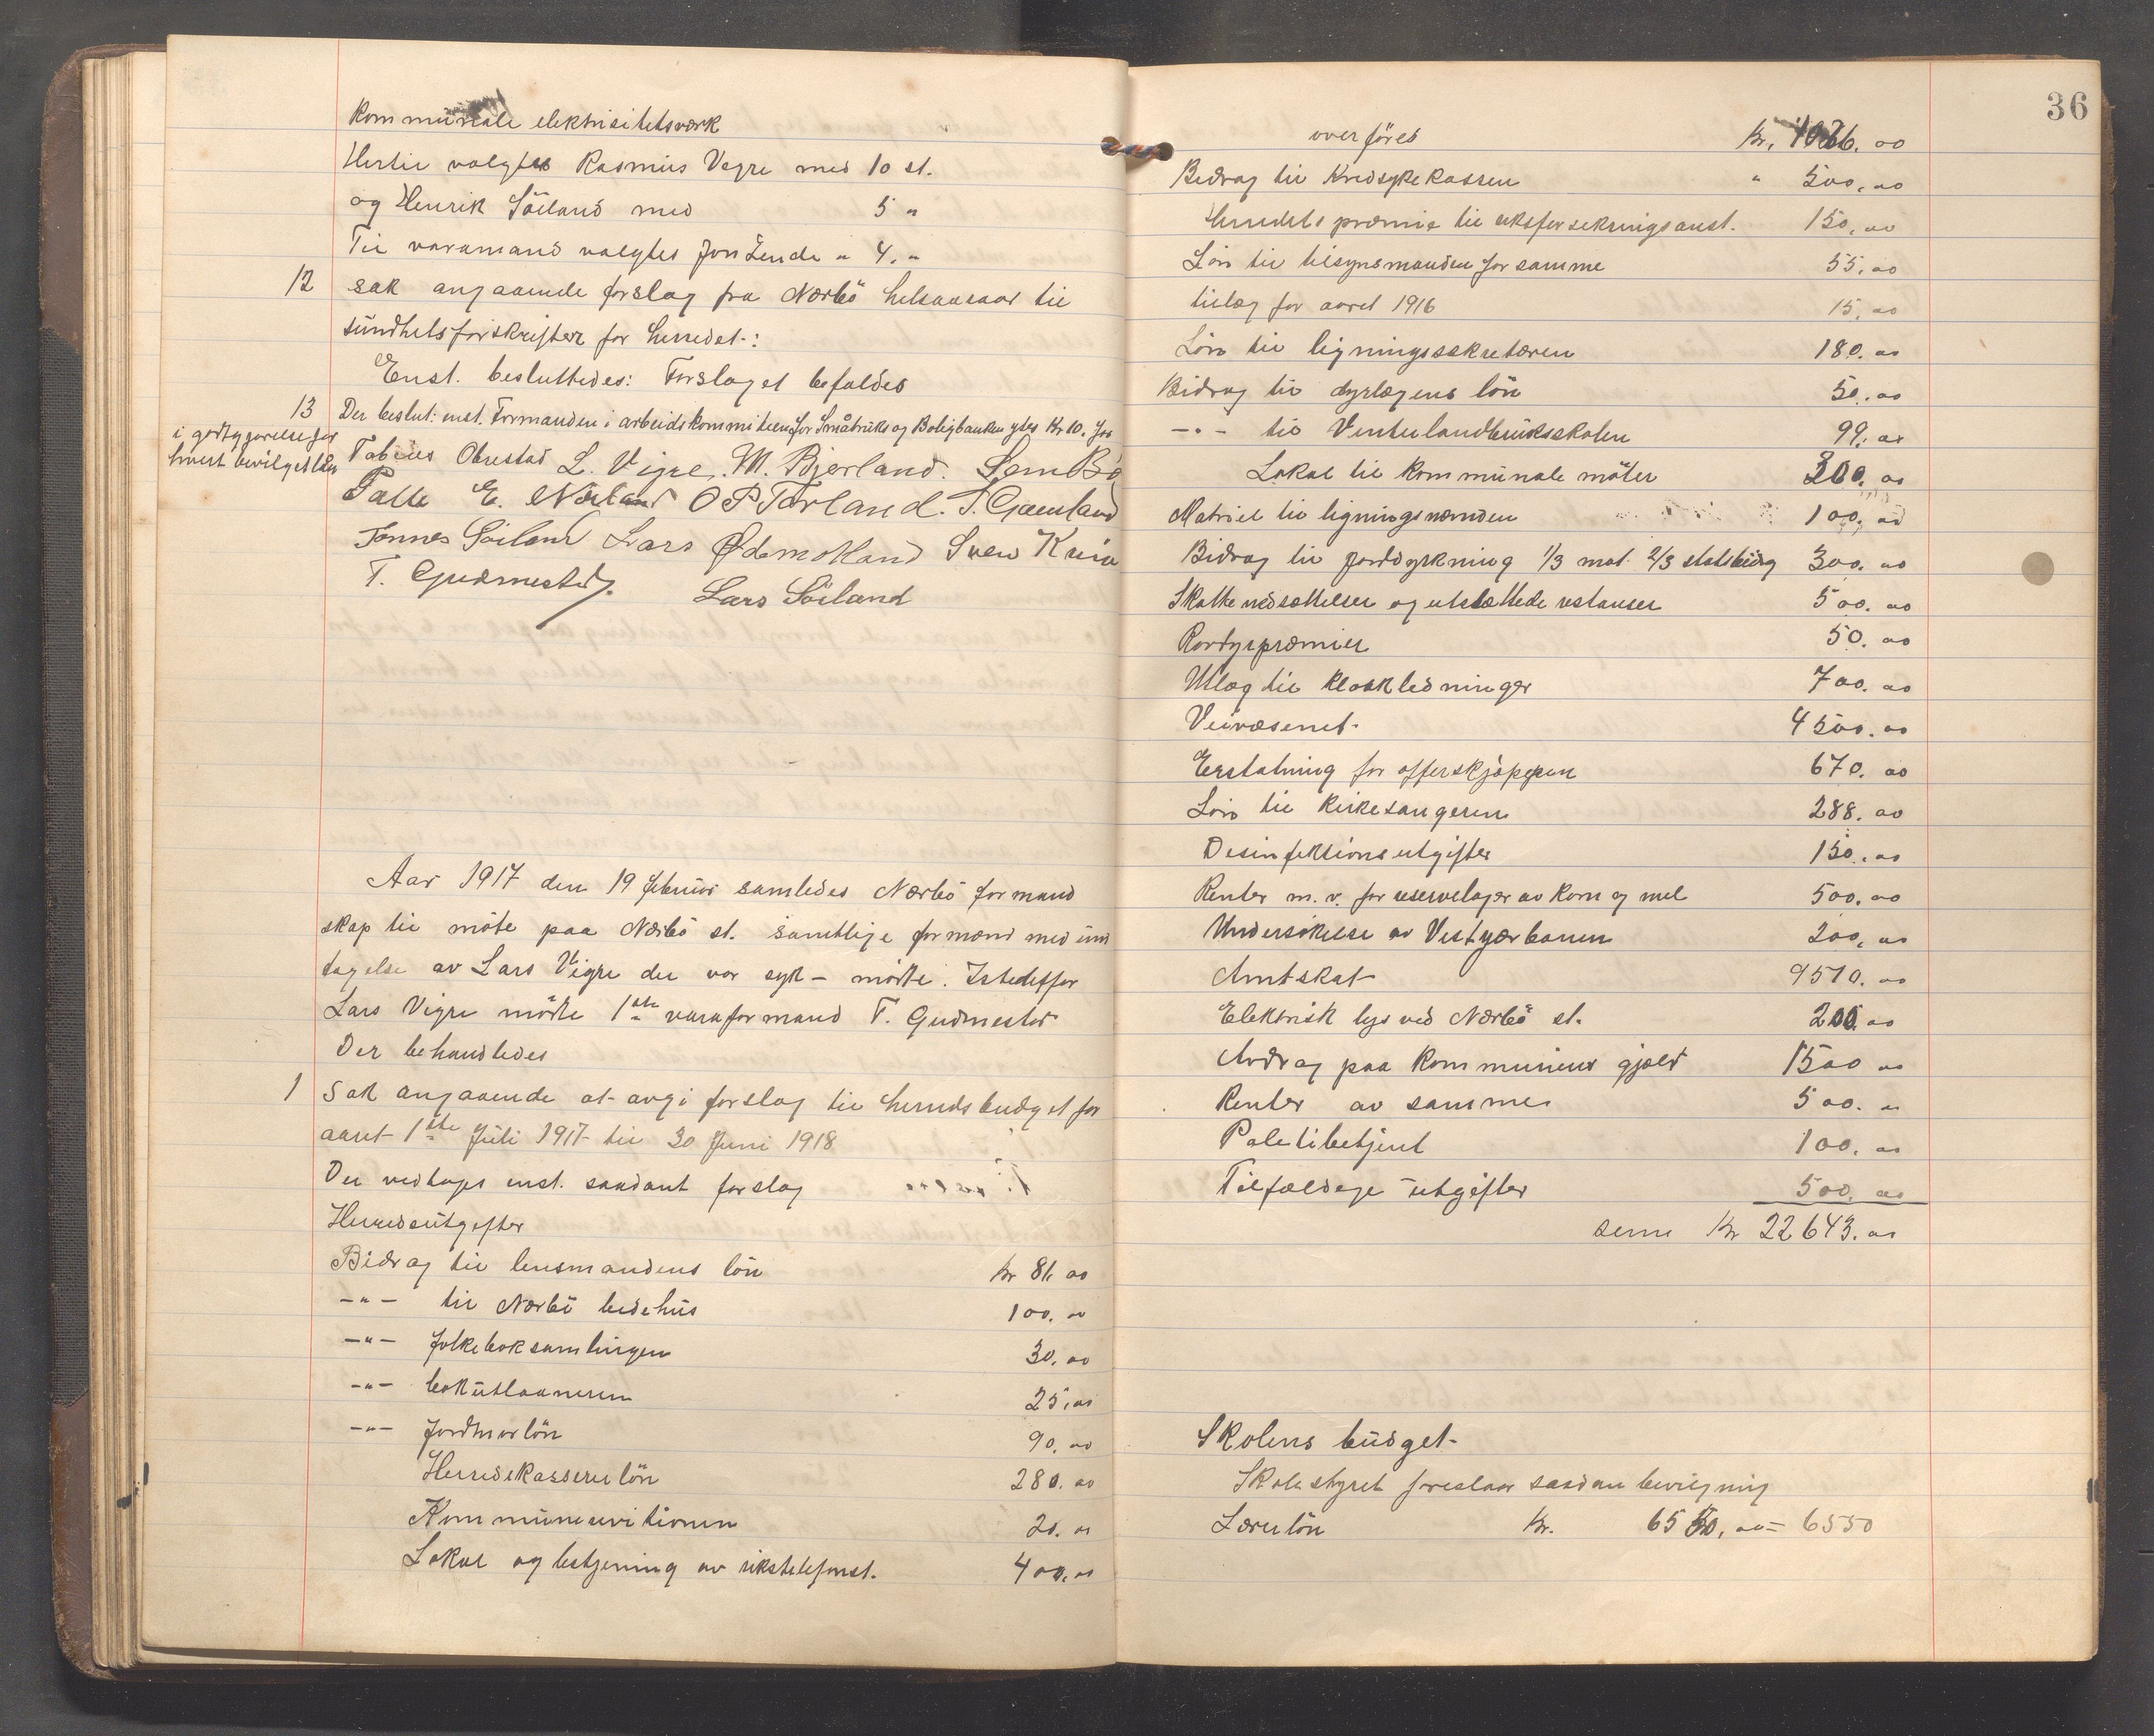 Kommunale elektrisitetsværk
Hertil valgtes Rasmus Vigre med 10 st.
og Henrik Söiland med 5 "
Til varamand valgtes Jon Lende " 4. "
12 Sak angaaende forslag fra Nærbö helseraar til
sundhetsforskrifter for herredet:
Enst. besluttedes: Forslaget befaldes
13 Der beslut. enst. Formanden i arbeidskommiteen for Småbruks og Boligbanken ydes Kr 10. for
i godtgjørelse for
hvert bevilget lån
Tobias Obrestad L. Vigre. M. Bjerland.
E. Nærland O P Torland. T. Gaustand
Tønnes Söiland Lars Ødemotland Sven
T. Gudmestad. Lars Söiland
Aar 1917 den 19 februar samledes Nærbö formand
skap til möte paa Nærbö st. samtlige formænd med und
tagelse av Lars Vigre der var syk – mötte. Istedetfor
Lars Vigre mötte 1ste varaformand T. Gudmestad
Der behandledes
1 Sak angaaende at avgi forslag til herredsbudget for
aaret 1ste Juli 1917 til 30 Juni 1918
Der vedtoges enst. saadant forslag
Herredsutgifter
Bidrag til lensmandens lön kr 81. 00
–"– til Nærbö bedehus 100. 00
–"– folkeboksamlingen 30. 00
–"– bokutlaaneren 25. 00
–"– Jordmorlön 90. 00
Herredskassererlön 280. 00
Kommunerevitionen 20. 00
Lokal og betjening av rikstelefonst. 400. 00
36
overföres kr. 1026. 00
Bidrag til Kredsykekassen " 500. 00
Herredets præmie til riksforsekringsanst. 150. 00
Lön til tilsynsmanden for samme 55. 00
tillæg for aaret 1916 15. 00
Lön til ligningssekretæren 180. 00
Bidrag til dyrlægens lön 50. 00
–"– til Vinterlandbruksskolen 99. 00
Lokal til kommunale möter 300. 00
Matriel til ligningsnævnden 100. 00
Bidrag til jorddyrkning 1/3 mot 2/3 statsbidrag 300. 00
Skattenedsættelser og utslættede restanser 500. 00
Rovdyrpræmier 50. 00
Utlæg til kloakledninger 700. 00
Veivæsenet 4500. 00
Erstatning for offerskjøpgen 670. 00
Lön til kirkesangeren 288. 00
Desinfektionsutgifter 150. 00
Renter m. v. for reservelager av korn og mel 500. 00
Undersökelse av Vestjærbanen 200. 00
Amtskat 9510. 00
Elektrisk lys ved Nærbö st. 200. 00
Avdrag paa kommunens gjæld 1500 00
Renter av samme 500. 00
Poletibetjent 100. 00
Tilfældige utgifter 500. 00
sum Kr 22643. 00
Skolens budget
Skolestyret foreslaar saadan bevilgning
Lærerlön Kr. 6550, 00 = 6550